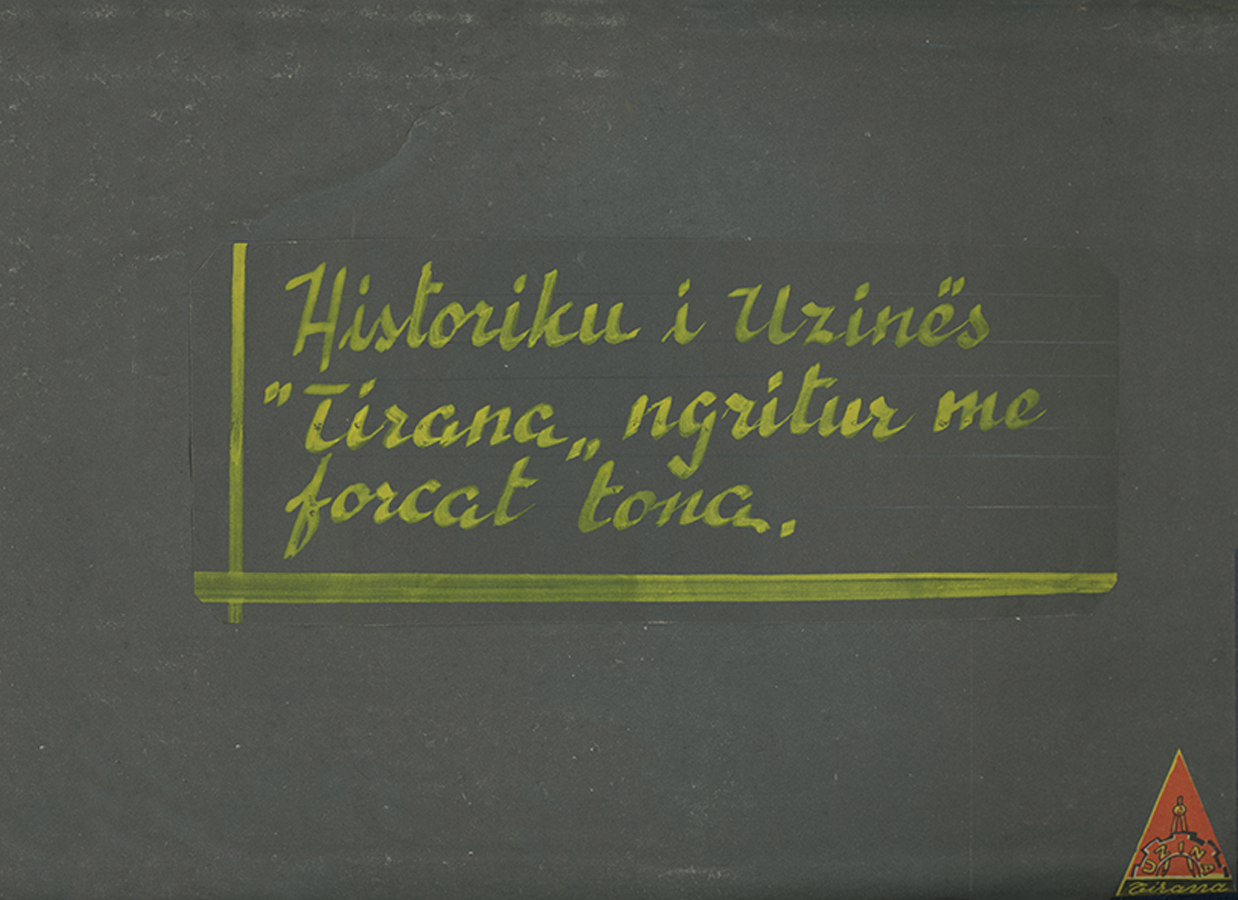 Historiku i Uzinës
"Tirana„ ngritur me
forcat "tona.
UZINA
Tirana